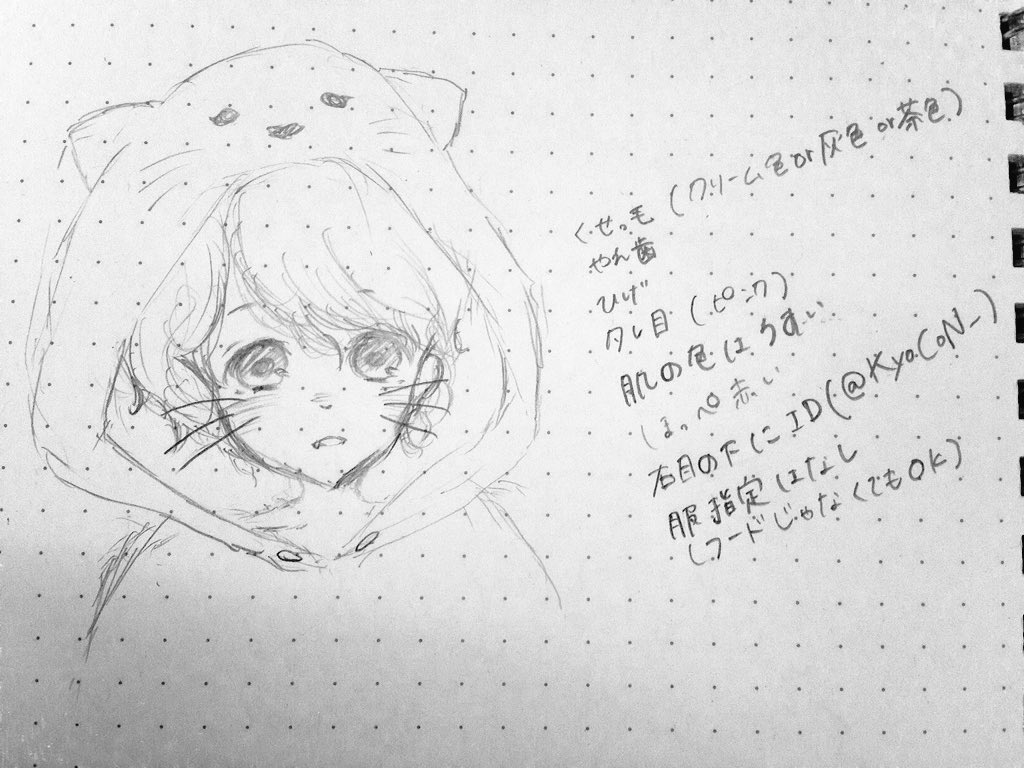 くせっ毛（クリーム色or灰色or茶色）
やれ歯
ひげ
タレ目（ピンク）
肌の色はうすい
ほっぺ赤い
右目の下にID(@KyoCoN_)
服指定はなし
（フードじゃなくてもOK）